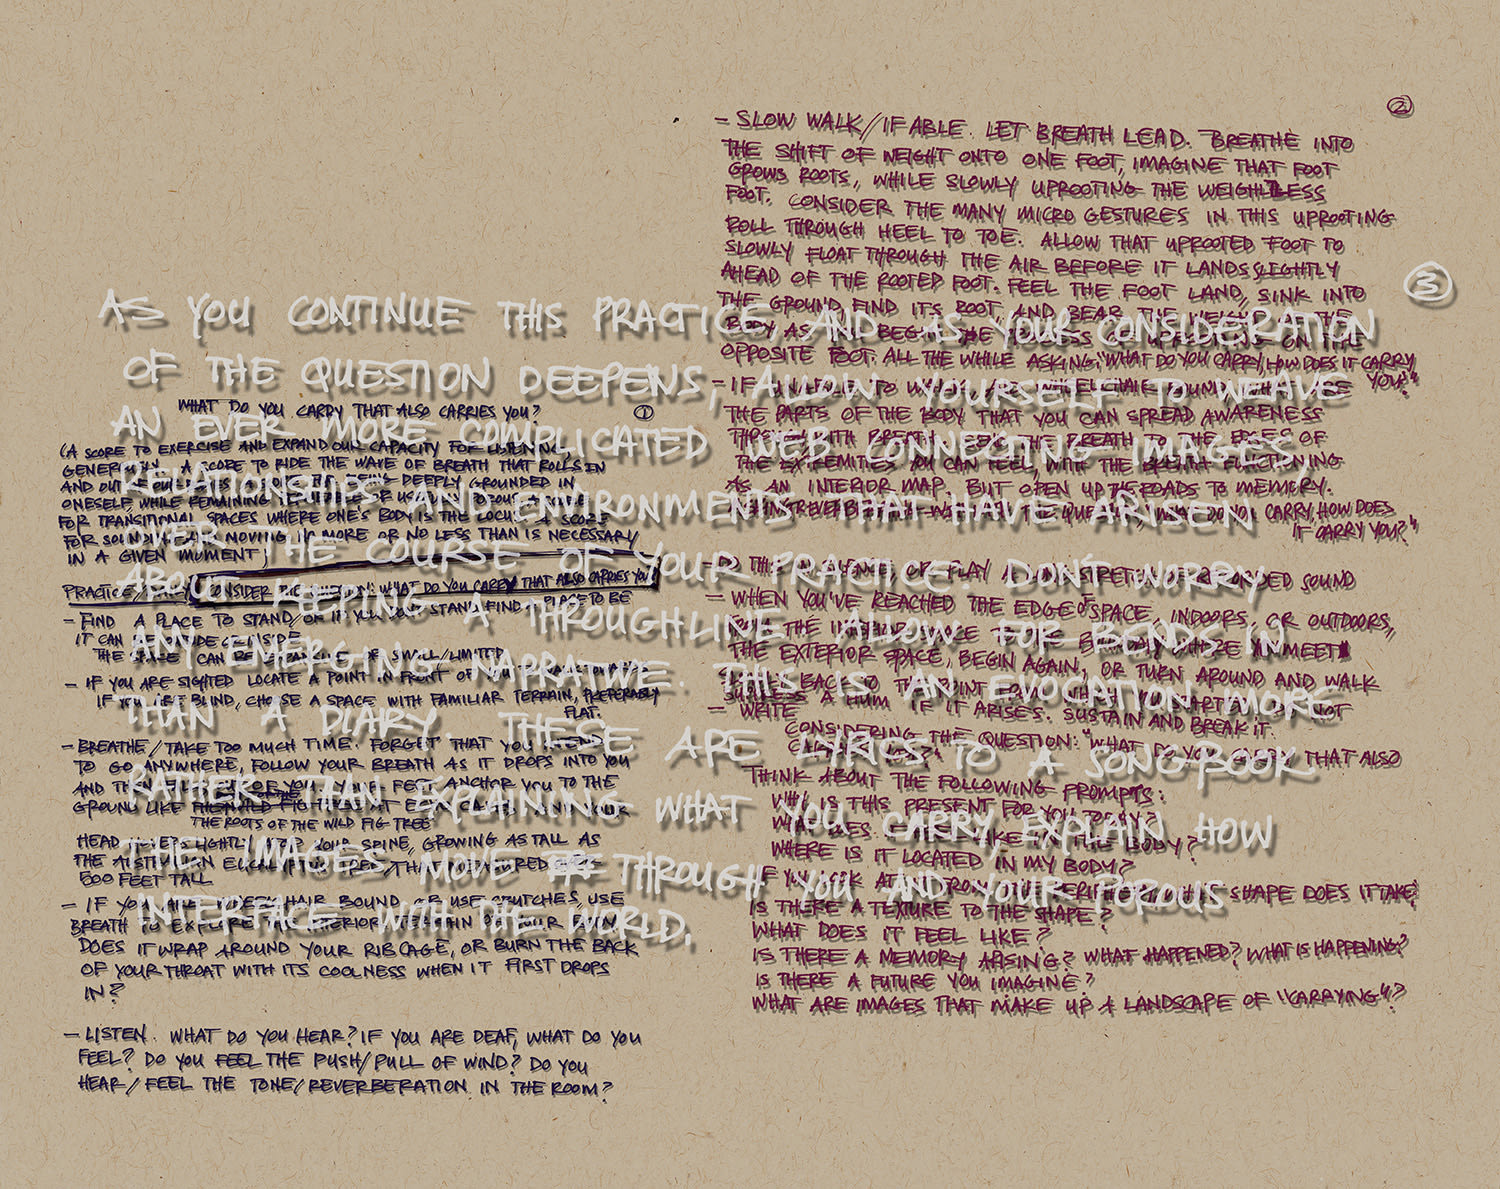 ①
WHAT DO YOU CARRY THAT ALSO CARRIES YOU?
(A SCORE TO EXERCISE AND EXPAND OUR CAPACITY FOR LISTENING,
A SCORE TO RIDE THE WAVE OF BREATH THAT ROLLS IN
AND OUT DEEPLY GROUNDED IN
ONESELF, WHILE REMAINING
FOR TRANSITIONAL SPACES WHERE ONE'S BODY IS THE LOCUS. A SCORE
FOR MOVING NO MORE OR NO LESS THAN IS NECESSARY
IN A GIVEN MOMENT)
PRACTICE CONSIDER WHAT DO YOU CARRY THAT ALSO CARRIES YOU?
– FIND A PLACE TO STAND/OR IF YOU STAND FIND PLACE TO BE
IT CAN BE OUTSIDE OR INSIDE
THE SPACE CAN BE OR SMALL/LIMITED
– IF YOU ARE SIGHTED LOCATE A POINT IN FRONT OF YOU
IF YOU ARE BLIND, CHOSE A SPACE WITH FAMILIAR TERRAIN, PREFERABLY
FLAT.
– BREATHE/TAKE TOO MUCH TIME. FORGET THAT YOU INTEND
TO GO ANYWHERE, FOLLOW YOUR BREATH AS IT DROPS INTO YOU
AND THEN OUT OF YOU. YOUR FEET ANCHOR YOU TO THE
GROUND LIKE YOUR
THE ROOTS OF THE WILD FIG TREE
HEAD SLIGHTLY YOUR SPINE, GROWING AS TALL AS
THE AUSTRALIAN
500 FEET TALL
– IF YOU ARE BOUND OR USE CRUTCHES, USE
BREATH TO EXPLORE YOUR BODY.
DOES IT WRAP AROUND YOUR RIB CAGE, OR BURN THE BACK
OF YOUR THROAT WITH ITS COOLNESS WHEN IT FIRST DROPS
IN?
– LISTEN. WHAT DO YOU HEAR? IF YOU ARE DEAF, WHAT DO YOU
FEEL? DO YOU FEEL THE PUSH/PULL OF WIND? DO YOU
HEAR/FEEL THE TONE/REVERBERATION IN THE ROOM?
②
– SLOW WALK/IF ABLE. LET BREATH LEAD. BREATHE INTO
THE SHIFT OF WEIGHT ONTO ONE FOOT, IMAGINE THAT FOOT
GROWS ROOTS, WHILE SLOWLY UPROOTING THE WEIGHTLESS
FOOT. CONSIDER THE MANY MICRO GESTURES IN THIS UPROOTING
ROLL THROUGH HEEL TO TOE. ALLOW THAT UPROOTED FOOT TO
SLOWLY FLOAT THROUGH THE AIR BEFORE IT LANDS SLIGHTLY
AHEAD OF THE ROOTED FOOT. FEEL THE FOOT LAND, SINK INTO
THE GROUND, FIND ITS ROOT, AND BEAR THE WEIGHT OF THE
BODY AS YOU BEGIN THE PROCESS OF UPROOTING ON THE
OPPOSITE FOOT. ALL THE WHILE ASKING: "WHAT DO YOU CARRY, HOW DOES IT CARRY
YOU?"
– IF UNABLE TO
THE PARTS OF THE BODY THAT YOU CAN SPREAD AWARENESS
THROUGH WITH BREATH. THE BREATH TO THE EDGES OF
THE EXTREMITIES YOU CAN FEEL, WITH THE BREATH FUNCTIONING
AS AN INTERIOR MAP. BUT OPEN UP THE ROADS TO MEMORY.
THE QUESTION, "WHAT DO YOU CARRY, HOW DOES
IT CARRY YOU?"
– OR PLAY SOUND
– WHEN YOU'VE REACHED THE EDGE OF SPACE, INDOORS, OR OUTDOORS,
MEET
THE EXTERIOR SPACE, BEGIN AGAIN, OR TURN AROUND AND WALK
BACK TO THE POINT NOT
A HUM IF IT ARISES. SUSTAIN AND BREAK IT.
– WRITE
CONSIDERING THE QUESTION: "WHAT DO YOU CARRY THAT ALSO
CARRIES YOU?"
THINK ABOUT THE FOLLOWING PROMPTS:
WHY IS THIS PRESENT FOR YOU TODAY?
WHAT DOES LIKE IN THE BODY?
WHERE IS IT LOCATED IN MY BODY?
IF YOU LOOK AT SHAPE DOES IT TAKE?
IS THERE A TEXTURE TO THE SHAPE?
WHAT DOES IT FEEL LIKE?
IS THERE A MEMORY ARISING? WHAT HAPPENED? WHAT IS HAPPENING?
IS THERE A FUTURE YOU IMAGINE?
WHAT ARE IMAGES THAT MAKE UP A LANDSCAPE OF "CARRYING"?
③
AS YOU CONTINUE THIS PRACTICE, AND AS YOUR CONSIDERATION
OF THE QUESTION DEEPENS, ALLOW YOURSELF TO WEAVE
AN EVER MORE COMPLICATED WEB CONNECTING IMAGES,
RELATIONSHIPS AND ENVIRONMENTS THAT HAVE ARISEN
OVER THE COURSE OF YOUR PRACTICE. DON'T WORRY
ABOUT KEEPING A THROUGHLINE. ALLOW FOR BENDS IN
ANY EMERGING NARRATIVE. THIS IS AN EVOCATION MORE
THAN A DIARY. THESE ARE LYRICS TO A SONGBOOK
RATHER THAN EXPLAINING WHAT YOU CARRY, EXPLAIN HOW
THE IMAGES MOVE THROUGH YOU AND YOUR POROUS
INTERFACE WITH THE WORLD.